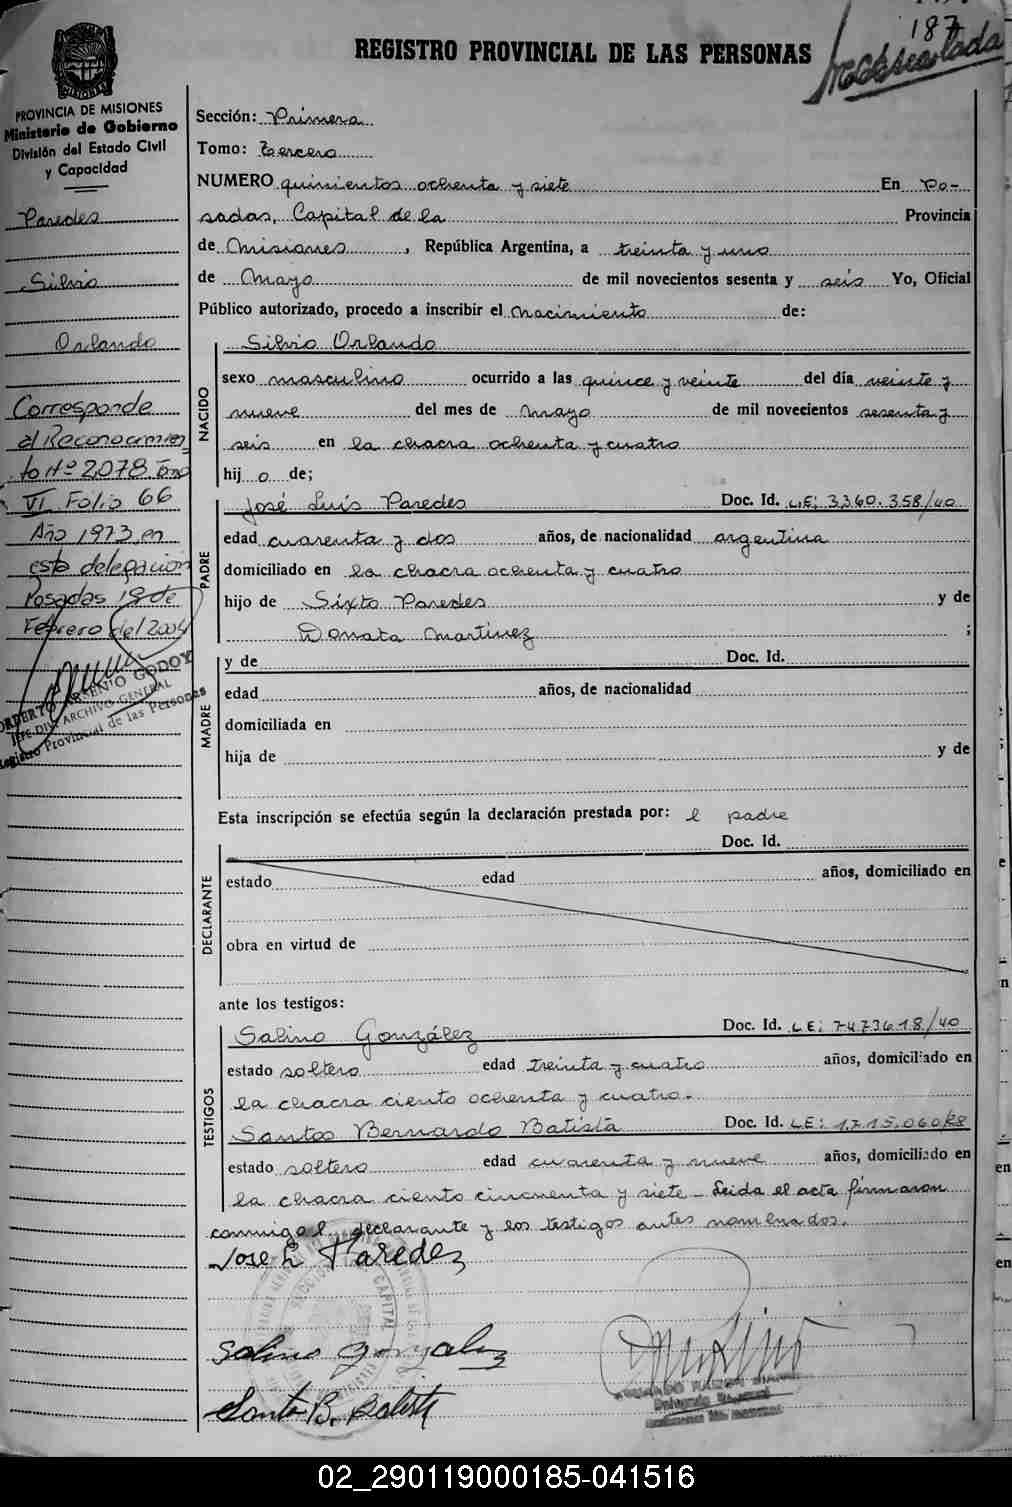 187
REGISTRO PROVINCIAL DE LAS PERSONAS
PROVINCIA DE MISIONES
Ministerio de Gobierno
División del Estado Civil
y Capacidad
Paredes
Silvio
Orlando
Corresponde
al Reconocimien
to Nº 2,078 Tomo
VI Folio 66
Año 1973, en
esta delegación
Posadas 19 de
Febrero del 2004
NORBERTO ARSENIO GODOY
JEFE DIV. ARCHIVO GENERAL
Registro Provincial de las Personas
Sección: Primera
Tomo: Tercero
NUMERO quinientos ochenta y siete En Po-
sadas, Capital de la Provincia
de Misiones, República Argentina, a treinta y uno
de Mayo de mil novecientos sesenta y seis Yo, Oficial
Público autorizado, procedo a inscribir el nacimiento de:
NACIDO
Silvio Orlando
sexo masculino ocurrido a las quince y veinte del día veinte y
nueve del mes de mayo de mil novecientos sesenta y
seis en la chacra ochenta y cuatro
hij o de;
PADRE
José Luis Paredes Doc. Id. L.E: 3360.358/40
edad cuarenta y dos años, de nacionalidad argentina
domiciliado en la chacra ochenta y cuatro
hijo de Sixto Paredes y de
Donata Martinez ;
MADRE
y de Doc. Id.
edad años, de nacionalidad
domiciliada en
hija de y de
Esta inscripción se efectúa según la declaración prestada por: el padre
Doc. Id.
DECLARANTE
estado edad años, domiciliado en
obra en virtud de
ante los testigos:
TESTIGOS
Salino González Doc. Id. LE: 7473618/40
estado soltero edad treinta y cuatro años, domiciliado en
la chacra ciento ochenta y cuatro.
Santos Bernardo Batista Doc. Id. LE: 1.715.060/28
estado soltero edad cuarenta y nueve años, domiciliado en
la chacra ciento cincuenta y siete - Leida el acta firmaron
conmigo el declarante y los testigos antes nominados.
Jose L Paredez
Salino Gonzalez
Santo B. Batista
02_290119000185-041516